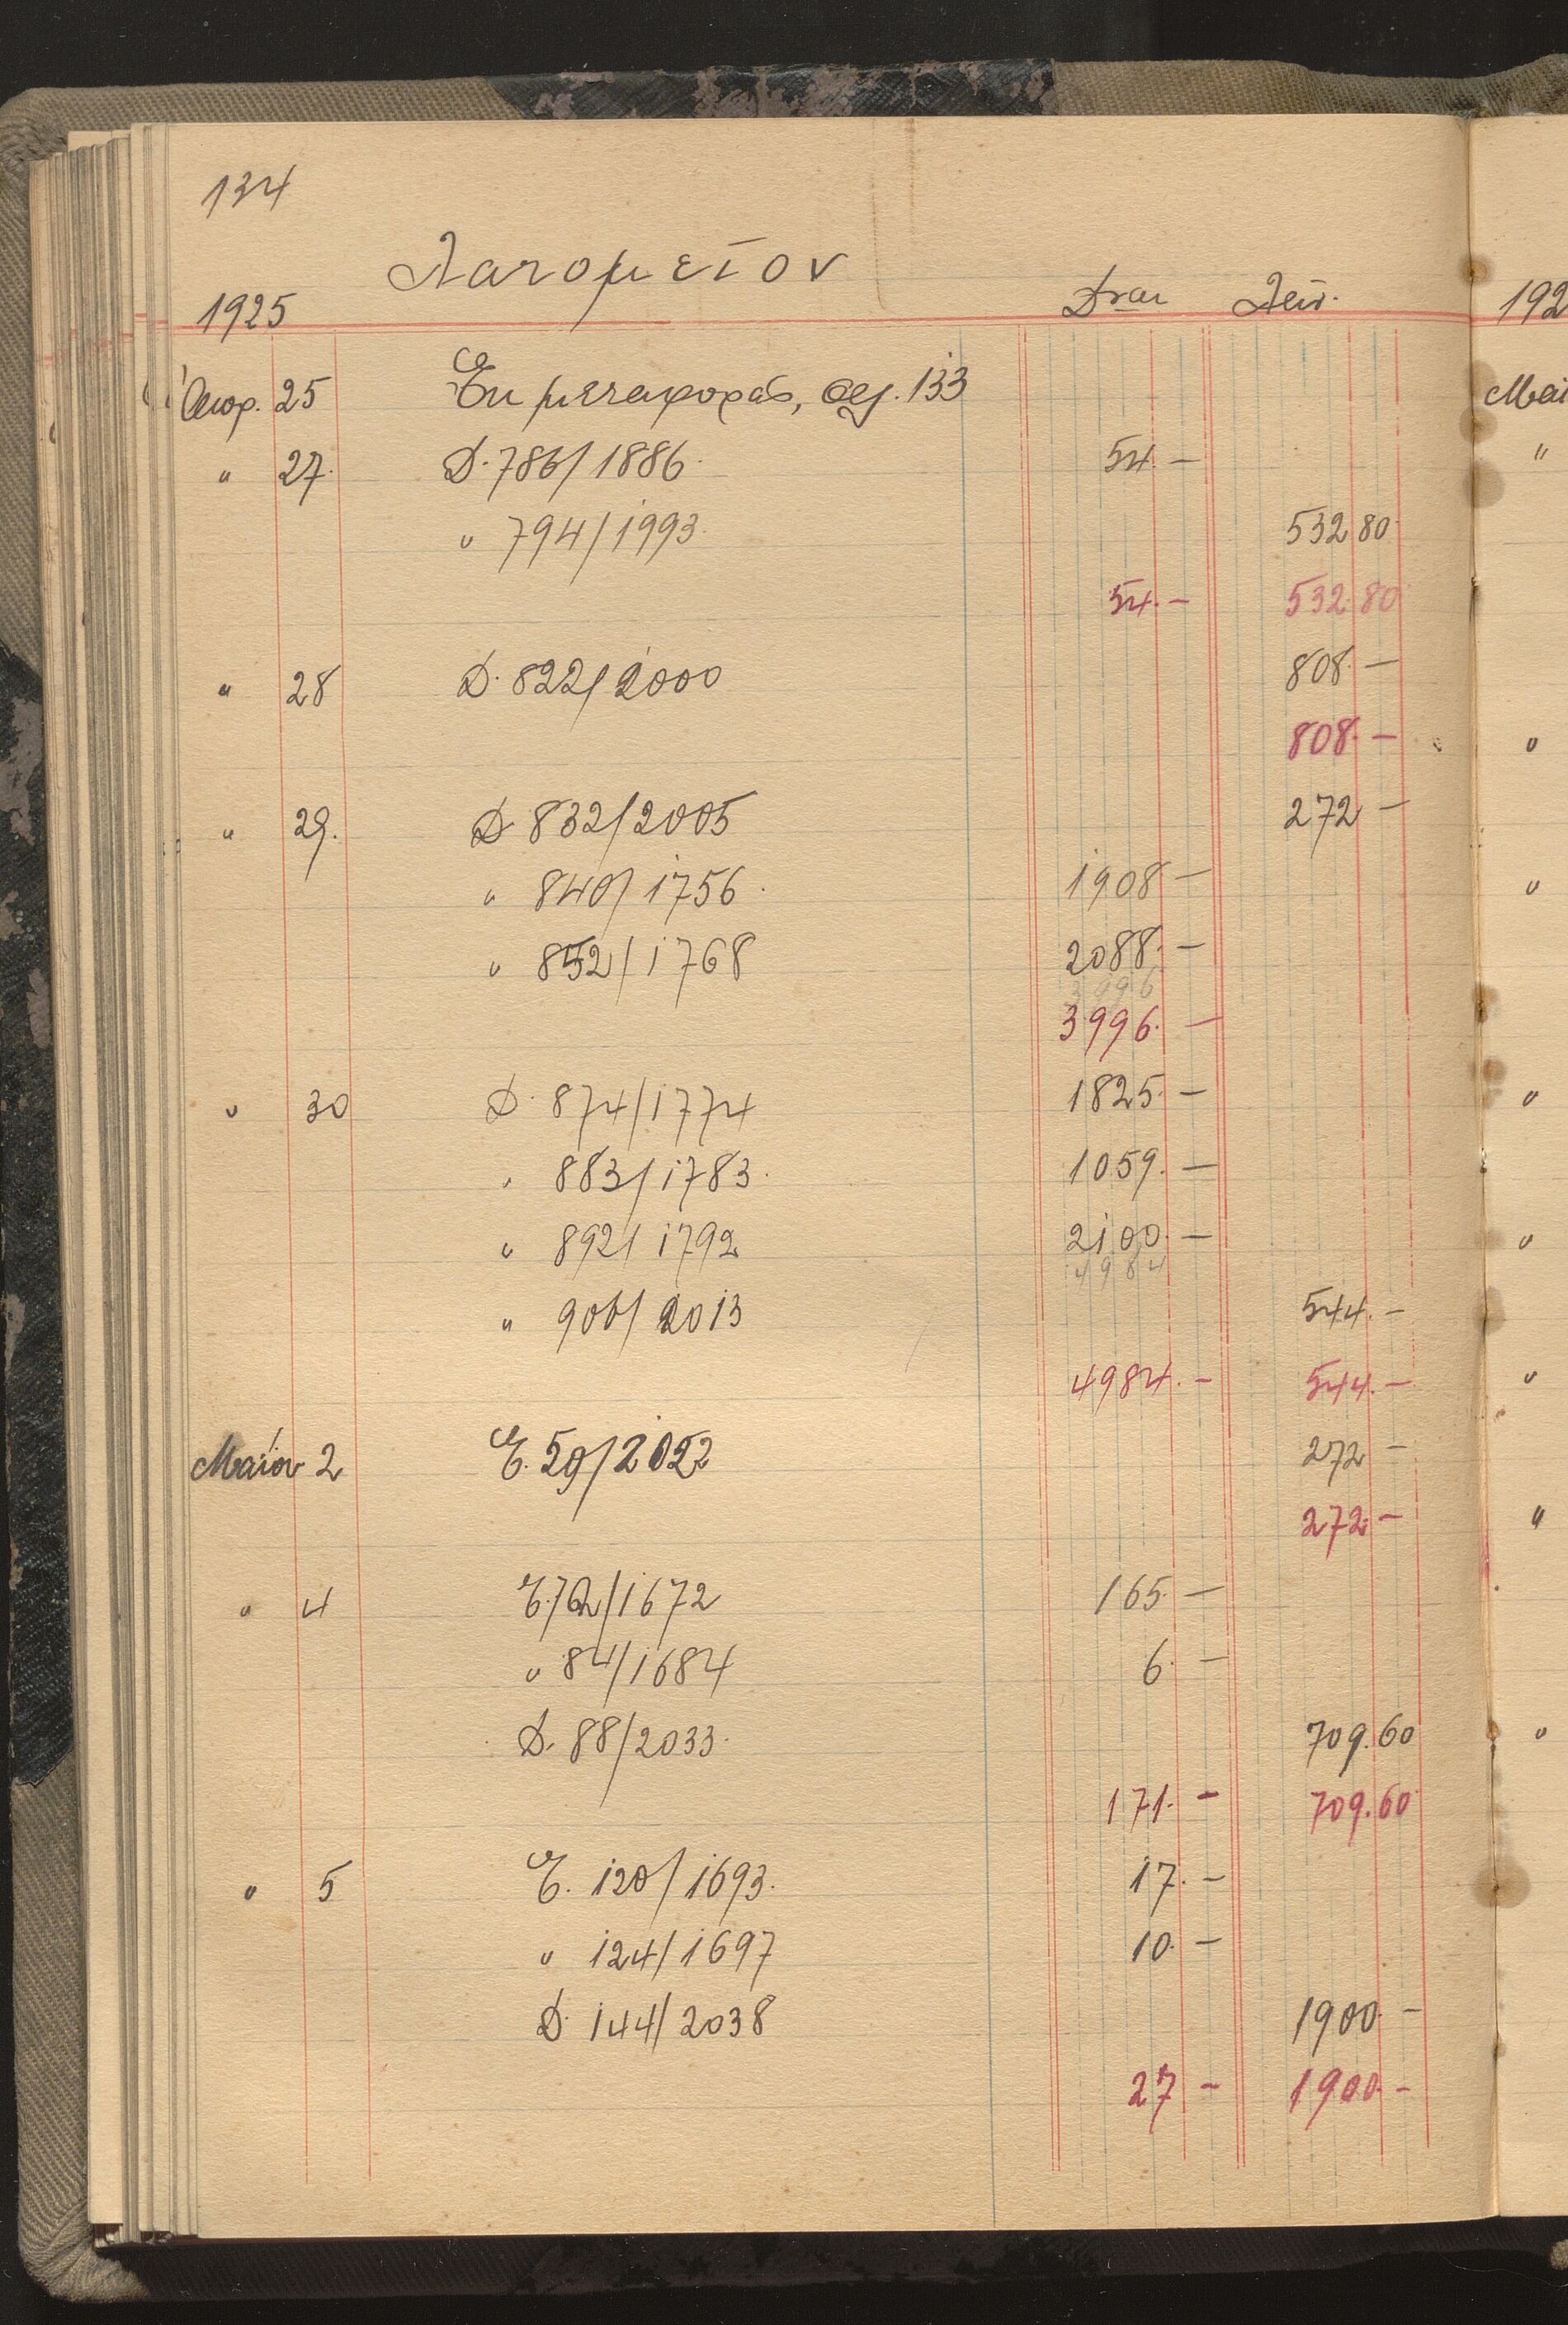 134
Λατομεῖον
1925
Ἀπρ. 25 Ἐκ μεταφορᾶς, σελ. 133
" 27. Δ. 786/1886. 54. —
" 794/1993. 532 80
54. — 532 80
" 28 Δ. 822/2000 808. —
808. —
" 29. Δ 832/2005 272 —
" 840/1756. 1908 —
" 852/1768 2088. —
3996
3996. —
" 30 Δ. 874/1774 1825. —
" 883/1783. 1059. —
" 892/1792 2100. —
4984
" 906/2013 544. —
4984. — 544. —
Μαΐου 2 Ε. 59/2022 272 —
272. —
" 4 Ε. 72/1672 165. —
" 84/1684 6. —
Δ. 88/2033. 709.60
171. — 709.60
" 5 Ε. 120/1693. 17. —
" 124/1697 10. —
Δ. 144/2038 1900. —
27 — 1900. —
192
Μαΐ
"
"
"
"
"
"
"
"